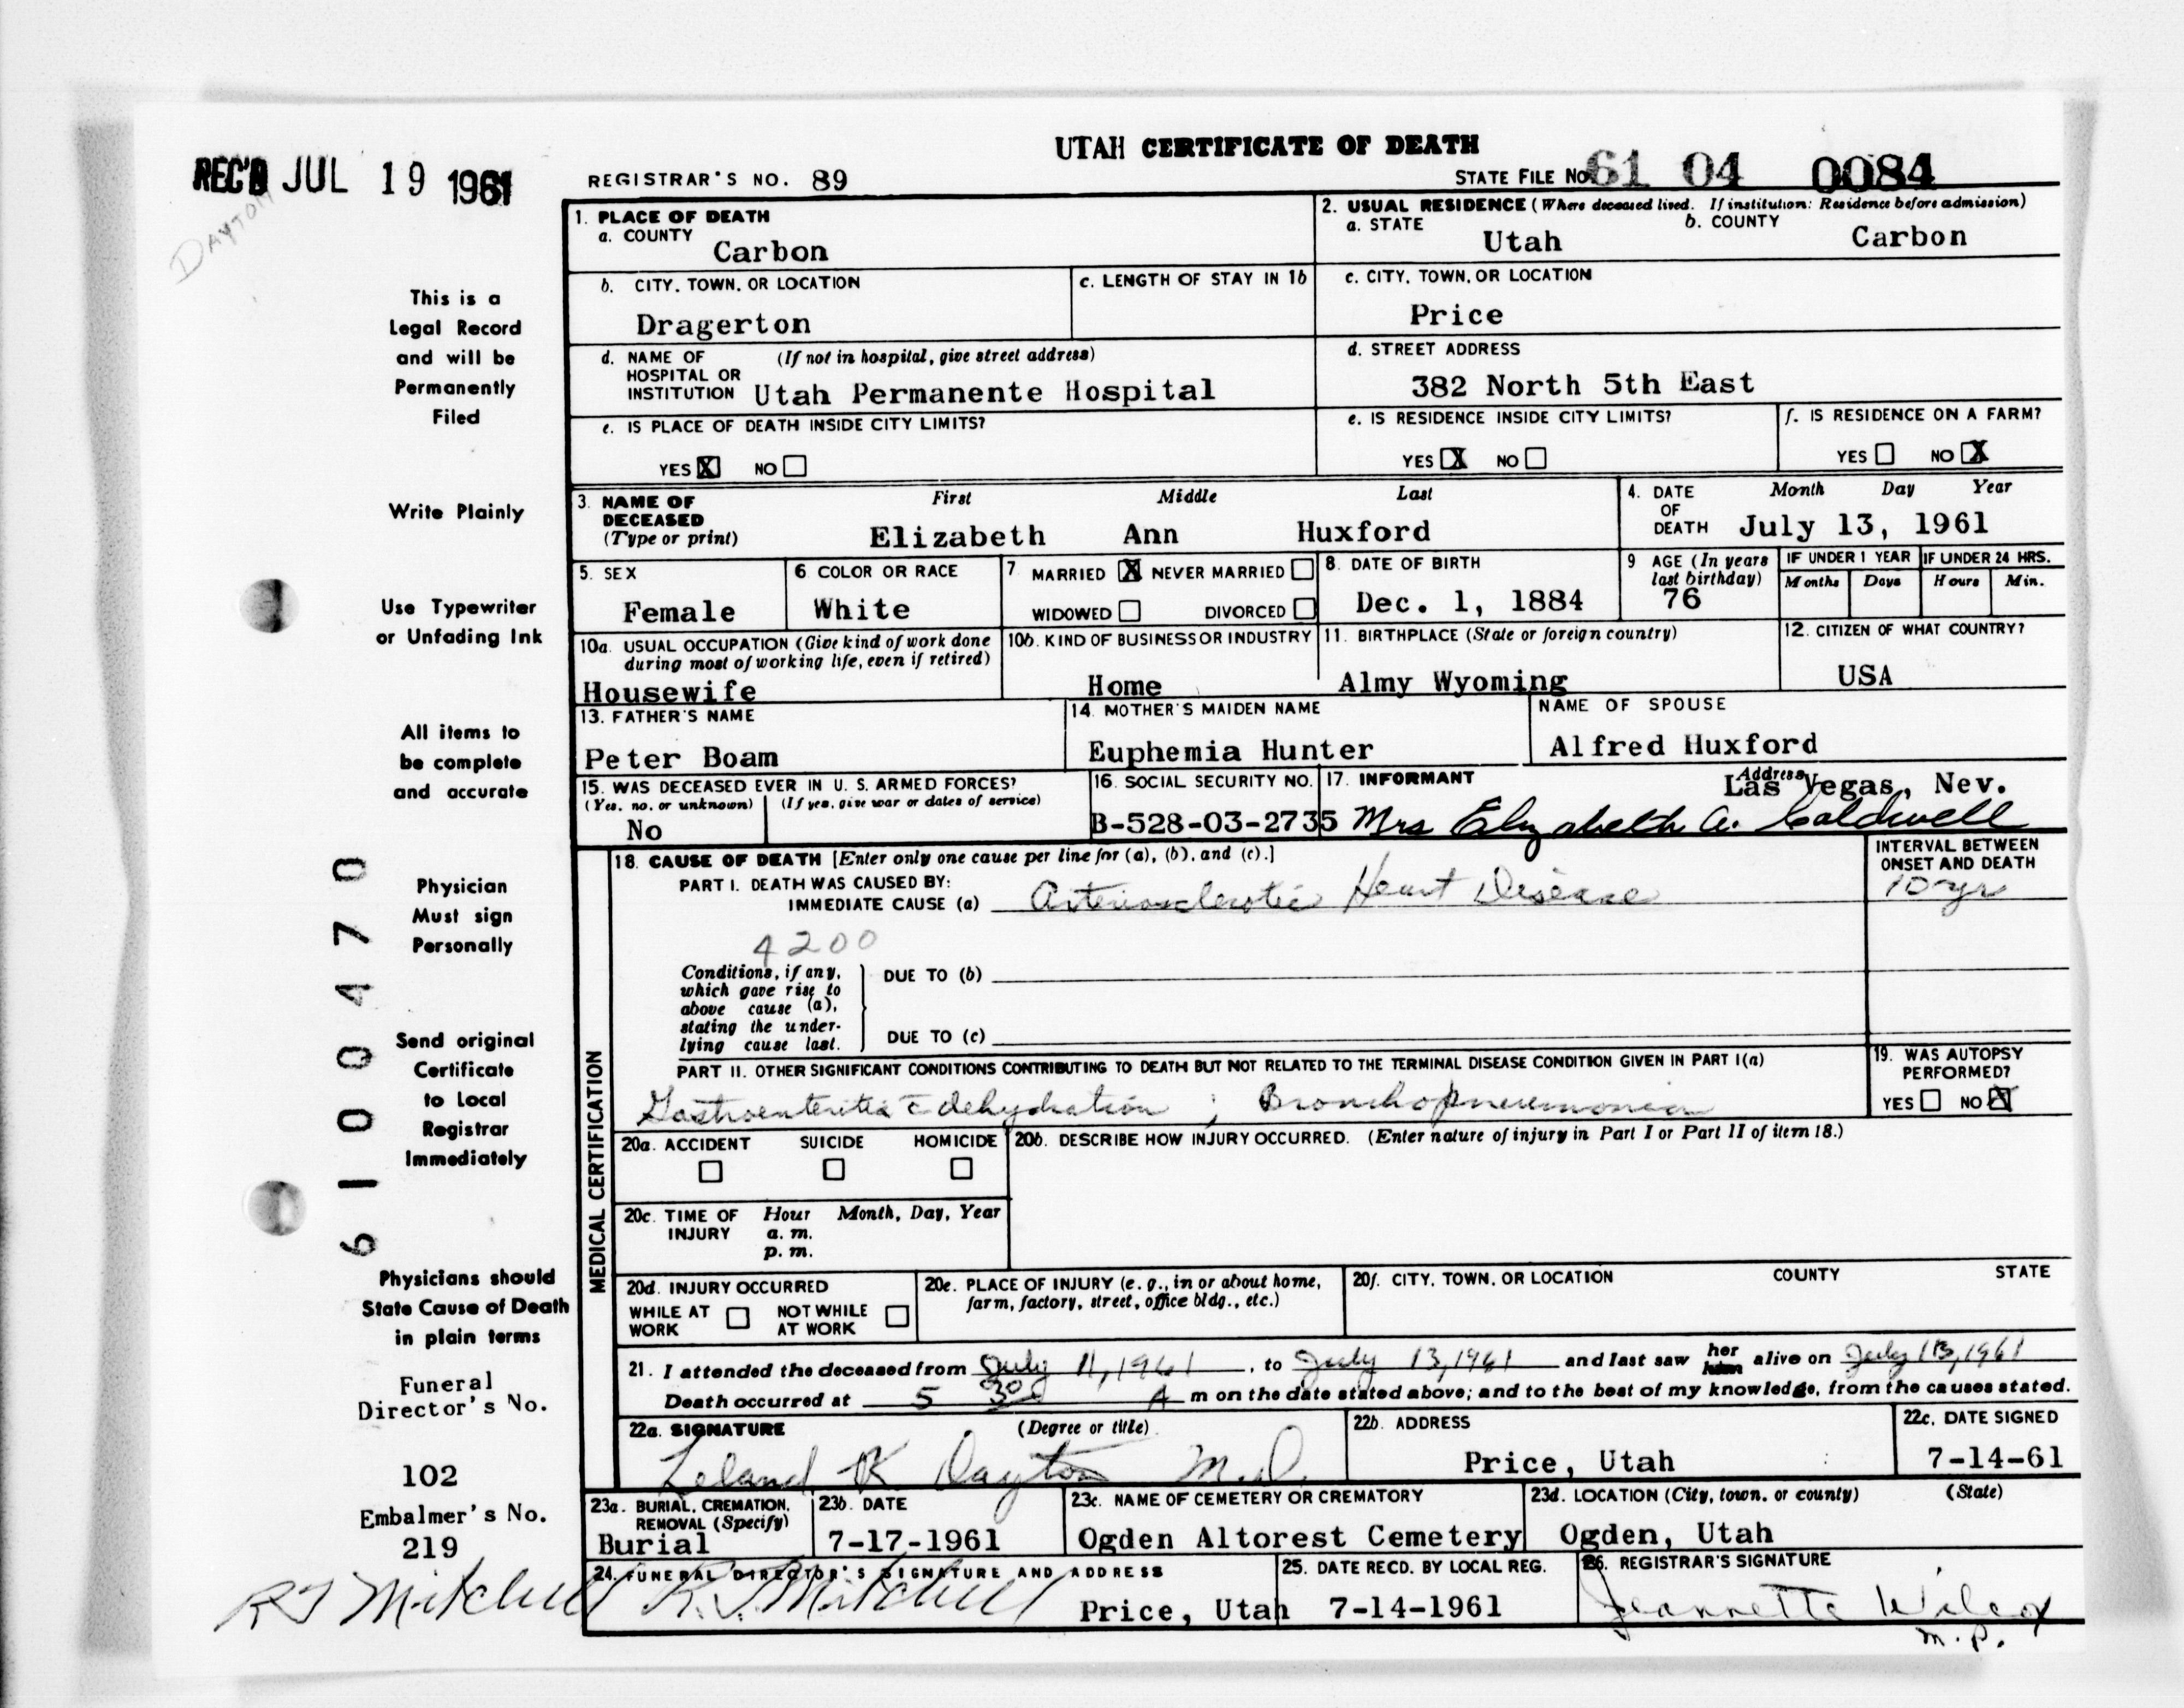 UTAH CERTIFICATE OF DEATH
REC'D JUL 19 1961
REGISTRAR'S NO. 89
STATE FILE NO. 61 04 0084
DAYTON
1. PLACE OF DEATH
a. COUNTY
Carbon
2. USUAL RESIDENCE (Where deceased lived. If institution: Residence before admission)
a. STATE Utah b. COUNTY Carbon
b. CITY, TOWN, OR LOCATION
Dragerton
c. LENGTH OF STAY IN 1b
c. CITY, TOWN, OR LOCATION
Price
d. NAME OF (If not in hospital, give street address)
HOSPITAL OR
INSTITUTION Utah Permanente Hospital
d. STREET ADDRESS
382 North 5th East
e. IS PLACE OF DEATH INSIDE CITY LIMITS?
YES X NO
e. IS RESIDENCE INSIDE CITY LIMITS?
YES X NO
f. IS RESIDENCE ON A FARM?
YES NO X
3. NAME OF
DECEASED
(Type or print)
First Middle Last
Elizabeth Ann Huxford
4. DATE
OF
DEATH
Month Day Year
July 13, 1961
5. SEX
Female
6. COLOR OR RACE
White
7. MARRIED X NEVER MARRIED
WIDOWED DIVORCED
8. DATE OF BIRTH
Dec. 1, 1884
9 AGE (In years
last birthday)
76
IF UNDER 1 YEAR
Months Days
IF UNDER 24 HRS.
Hours Min.
10a. USUAL OCCUPATION (Give kind of work done
during most of working life, even if retired)
Housewife
10b. KIND OF BUSINESS OR INDUSTRY
Home
11. BIRTHPLACE (State or foreign country)
Almy Wyoming
12. CITIZEN OF WHAT COUNTRY?
USA
13. FATHER'S NAME
Peter Boam
14. MOTHER'S MAIDEN NAME
Euphemia Hunter
NAME OF SPOUSE
Alfred Huxford
15. WAS DECEASED EVER IN U. S. ARMED FORCES?
(Yes, no, or unknown) (If yes, give war or dates of service)
No
16. SOCIAL SECURITY NO.
B-528-03-2735
17. INFORMANT Address
Las Vegas, Nev.
Mrs Elizabeth A. Caldwell
MEDICAL CERTIFICATION
18. CAUSE OF DEATH [Enter only one cause per line for (a), (b), and (c).]
PART I. DEATH WAS CAUSED BY:
IMMEDIATE CAUSE (a) Arteriosclerotic Heart Disease
INTERVAL BETWEEN
ONSET AND DEATH
10 yr
4200
Conditions, if any,
which gave rise to
above cause (a),
stating the under-
lying cause last.
DUE TO (b)
DUE TO (c)
PART II. OTHER SIGNIFICANT CONDITIONS CONTRIBUTING TO DEATH BUT NOT RELATED TO THE TERMINAL DISEASE CONDITION GIVEN IN PART I(a)
Gastroenteritis c̄ dehydration ; Bronchopneumonia
19. WAS AUTOPSY
PERFORMED?
YES NO X
20a. ACCIDENT SUICIDE HOMICIDE
20b. DESCRIBE HOW INJURY OCCURRED. (Enter nature of injury in Part I or Part II of item 18.)
20c. TIME OF
INJURY
Hour Month, Day, Year
a. m.
p. m.
20d. INJURY OCCURRED
WHILE AT
WORK
NOT WHILE
AT WORK
20e. PLACE OF INJURY (e. g., in or about home,
farm, factory, street, office bldg., etc.)
20f. CITY, TOWN, OR LOCATION COUNTY STATE
21. I attended the deceased from July 11, 1961, to July 13, 1961 and last saw her him alive on July 13, 1961
Death occurred at 5 30 A m on the date stated above; and to the best of my knowledge, from the causes stated.
22a. SIGNATURE (Degree or title)
Leland K Dayton M.D.
22b. ADDRESS
Price, Utah
22c. DATE SIGNED
7-14-61
23a. BURIAL, CREMATION,
REMOVAL (Specify)
Burial
23b. DATE
7-17-1961
23c. NAME OF CEMETERY OR CREMATORY
Ogden Altorest Cemetery
23d. LOCATION (City, town, or county) (State)
Ogden, Utah
24. FUNERAL DIRECTOR'S SIGNATURE AND ADDRESS
R.J. Mitchell Price, Utah
25. DATE RECD. BY LOCAL REG.
7-14-1961
26. REGISTRAR'S SIGNATURE
Jeannette Wilcox
M.P.
This is a
Legal Record
and will be
Permanently
Filed
Write Plainly
Use Typewriter
or Unfading Ink
All items to
be complete
and accurate
Physician
Must sign
Personally
Send original
Certificate
to Local
Registrar
Immediately
Physicians should
State Cause of Death
in plain terms
Funeral
Director's No.
102
Embalmer's No.
219
RJ Mitchell
6100470